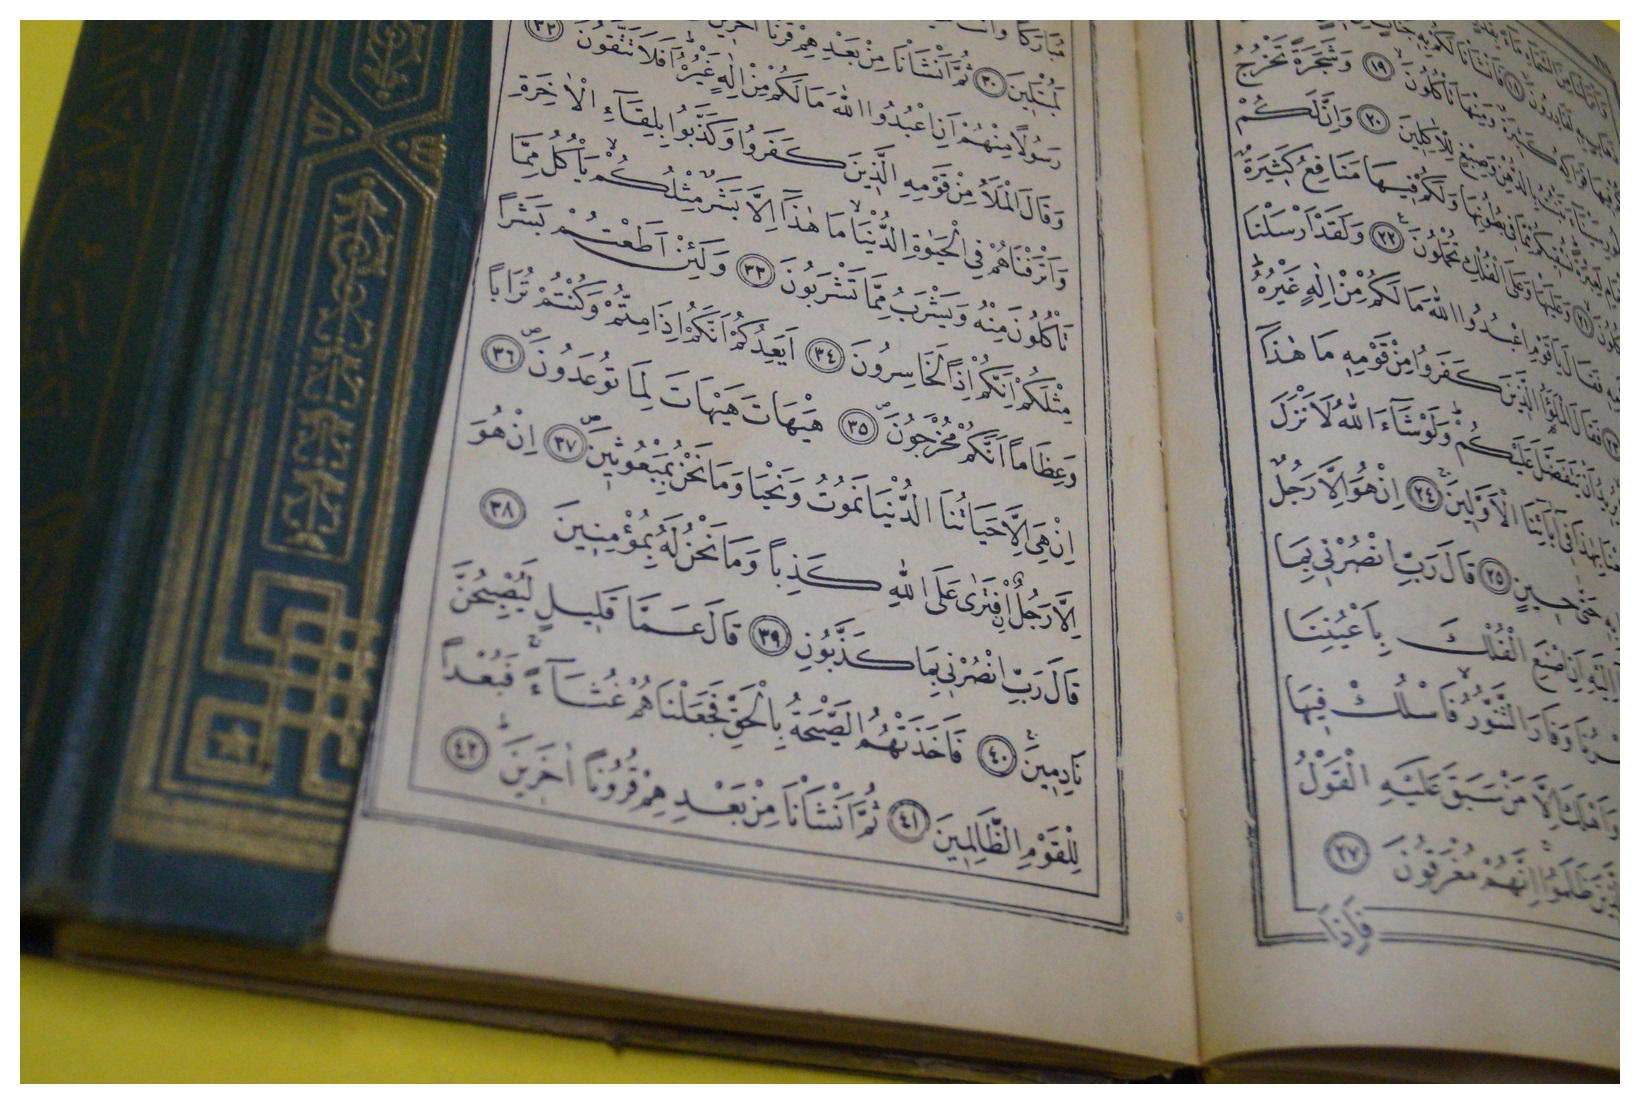 لَقَادِرُونَ ١٨ فَاَنْشَاْنَا لَكُمْ بِهِ جَنَّاتٍ
فَوَاكِهُ كَثِيرَةٌ وَمِنْهَا تَاْكُلُونَ ١٩ وَشَجَرَةً تَخْرُجُ
سَيْنَٓاءَ تَنْبُتُ بِالدُّهْنِ وَصِبْغٍ لِلْاٰكِلِينَ ٢٠ وَاِنَّ لَكُمْ
لَعِبْرَةً نُسْقِيكُمْ مِمَّا فِى بُطُونِهَا وَلَكُمْ فِيهَا مَنَافِعُ كَثِيرَةٌ
٢١ وَعَلَيْهَا وَعَلَى الْفُلْكِ تُحْمَلُونَ ٢٢ وَلَقَدْ اَرْسَلْنَا
فَقَالَ يَا قَوْمِ اعْبُدُوا اللّٰهَ مَا لَكُمْ مِنْ اِلٰهٍ غَيْرُهُ
٢٣ فَقَالَ الْمَلَؤُا الَّذِينَ كَفَرُوا مِنْ قَوْمِهِ مَا هٰذَٓا
يُرِيدُ اَنْ يَتَفَضَّلَ عَلَيْكُمْ وَلَوْ شَٓاءَ اللّٰهُ لَاَنْزَلَ
بِهٰذَا فِى اٰبَٓائِنَا الْاَوَّلِينَ ٢٤ اِنْ هُوَ اِلَّا رَجُلٌ
بِهِ حَتّٰى حِينٍ ٢٥ قَالَ رَبِّ انْصُرْنِى بِمَا
اِلَيْهِ اَنِ اصْنَعِ الْفُلْكَ بِاَعْيُنِنَا
وَفَارَ التَّنُّورُ فَاسْلُكْ فِيهَا
وَاَهْلَكَ اِلَّا مَنْ سَبَقَ عَلَيْهِ الْقَوْلُ
ظَلَمُوا اِنَّهُمْ مُغْرَقُونَ ٢٧
فَاِذَا
مُبَارَكًا وَاَنْتَ
لَمُبْتَلِينَ ٣٠ ثُمَّ اَنْشَاْنَا مِنْ بَعْدِهِمْ قَرْنًا اٰخَرِينَ
رَسُولًا مِنْهُمْ اَنِ اعْبُدُوا اللّٰهَ مَا لَكُمْ مِنْ اِلٰهٍ غَيْرُهُ اَفَلَا تَتَّقُونَ ٣٢
وَقَالَ الْمَلَاُ مِنْ قَوْمِهِ الَّذِينَ كَفَرُوا وَكَذَّبُوا بِلِقَٓاءِ الْاٰخِرَةِ
وَاَتْرَفْنَاهُمْ فِى الْحَيٰوةِ الدُّنْيَا مَا هٰذَٓا اِلَّا بَشَرٌ مِثْلُكُمْ يَاْكُلُ مِمَّا
تَاْكُلُونَ مِنْهُ وَيَشْرَبُ مِمَّا تَشْرَبُونَ ٣٣ وَلَئِنْ اَطَعْتُمْ بَشَرًا
مِثْلَكُمْ اِنَّكُمْ اِذًا لَخَاسِرُونَ ٣٤ اَيَعِدُكُمْ اَنَّكُمْ اِذَا مِتُّمْ وَكُنْتُمْ تُرَابًا
وَعِظَامًا اَنَّكُمْ مُخْرَجُونَ ٣٥ هَيْهَاتَ هَيْهَاتَ لِمَا تُوعَدُونَ ٣٦
اِنْ هِىَ اِلَّا حَيَاتُنَا الدُّنْيَا نَمُوتُ وَنَحْيَا وَمَا نَحْنُ بِمَبْعُوثِينَ ٣٧ اِنْ هُوَ
اِلَّا رَجُلٌ افْتَرٰى عَلَى اللّٰهِ كَذِبًا وَمَا نَحْنُ لَهُ بِمُؤْمِنِينَ ٣٨
قَالَ رَبِّ انْصُرْنِى بِمَا كَذَّبُونِ ٣٩ قَالَ عَمَّا قَلِيلٍ لَيُصْبِحُنَّ
نَادِمِينَ ٤٠ فَاَخَذَتْهُمُ الصَّيْحَةُ بِالْحَقِّ فَجَعَلْنَاهُمْ غُثَٓاءً فَبُعْدًا
لِلْقَوْمِ الظَّالِمِينَ ٤١ ثُمَّ اَنْشَاْنَا مِنْ بَعْدِهِمْ قُرُونًا اٰخَرِينَ ٤٢